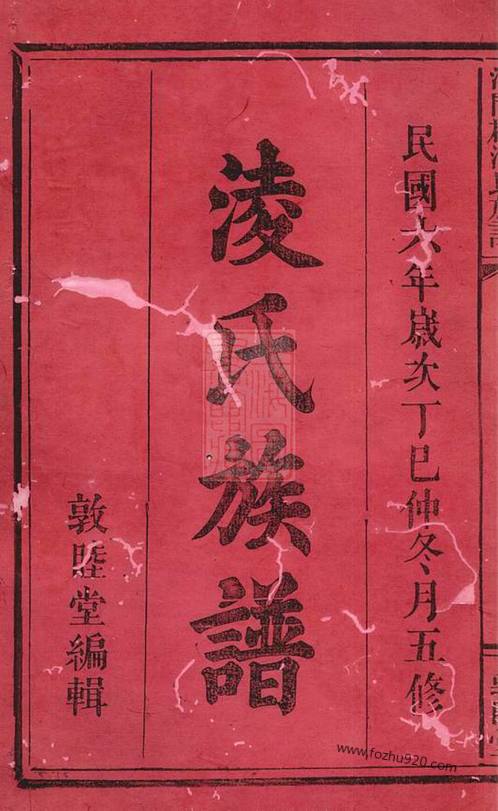 民國六年嵗次丁巳仲冬月五修
淩氏族譜
敦睦堂編輯
www.fozhu920.com